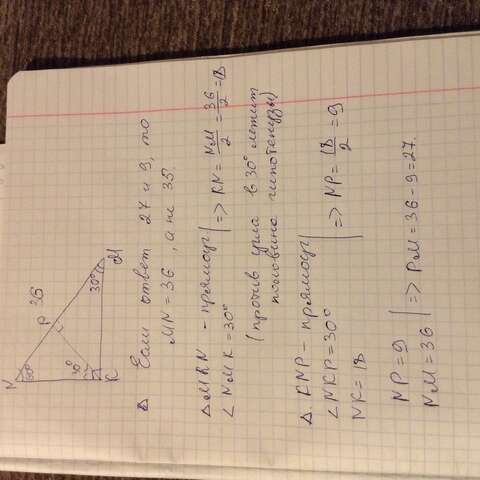 N
60°
P
36
30°
K
30°
M
Δ Если ответ 27 и 9, то
MN = 36, а не 35.
Δ MKN - прямоуг
∠ NMK = 30°
=> KN = NM/2 = 36/2 = 18
(против угла в 30° лежит
половина гипотенузы)
Δ. KNP - прямоуг
∠NKP = 30°
NK = 18
=> NP = 18/2 = 9
NP = 9
NM = 36
=> PM = 36 - 9 = 27.